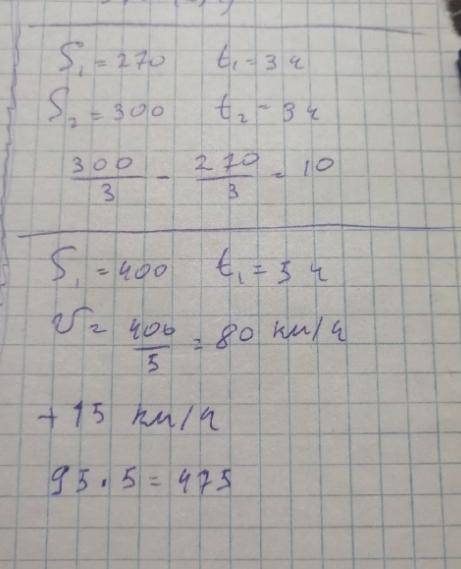 S₁ = 270 t₁ = 3 ч
S₂ = 300 t₂ = 3 ч
300/3 - 270/3 = 10
S₁ = 400 t₁ = 5 ч
V = 400/5 = 80 км/ч
+ 15 км/ч
95 · 5 = 475